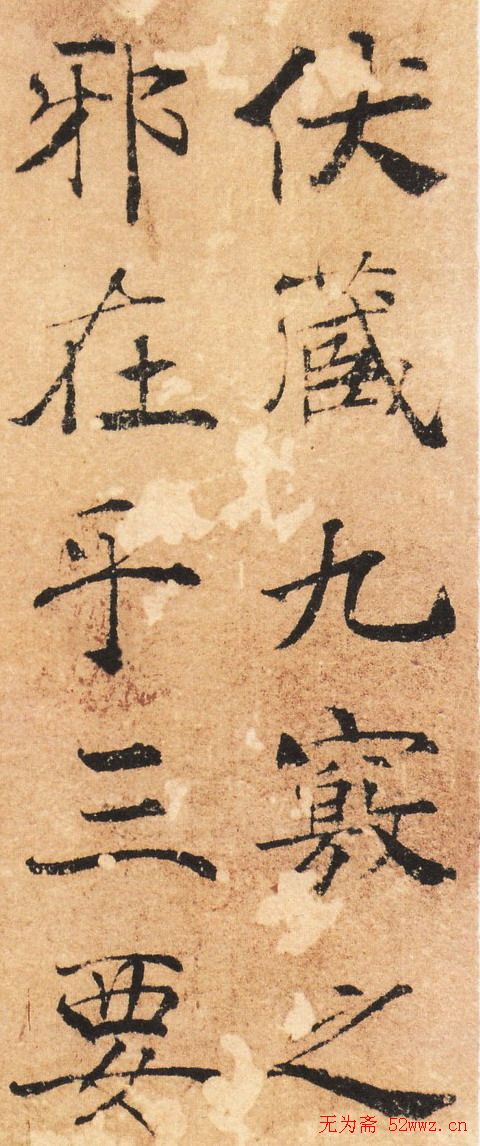 伏藏九竅之
邪在乎三要
无为斋 52wwz.cn